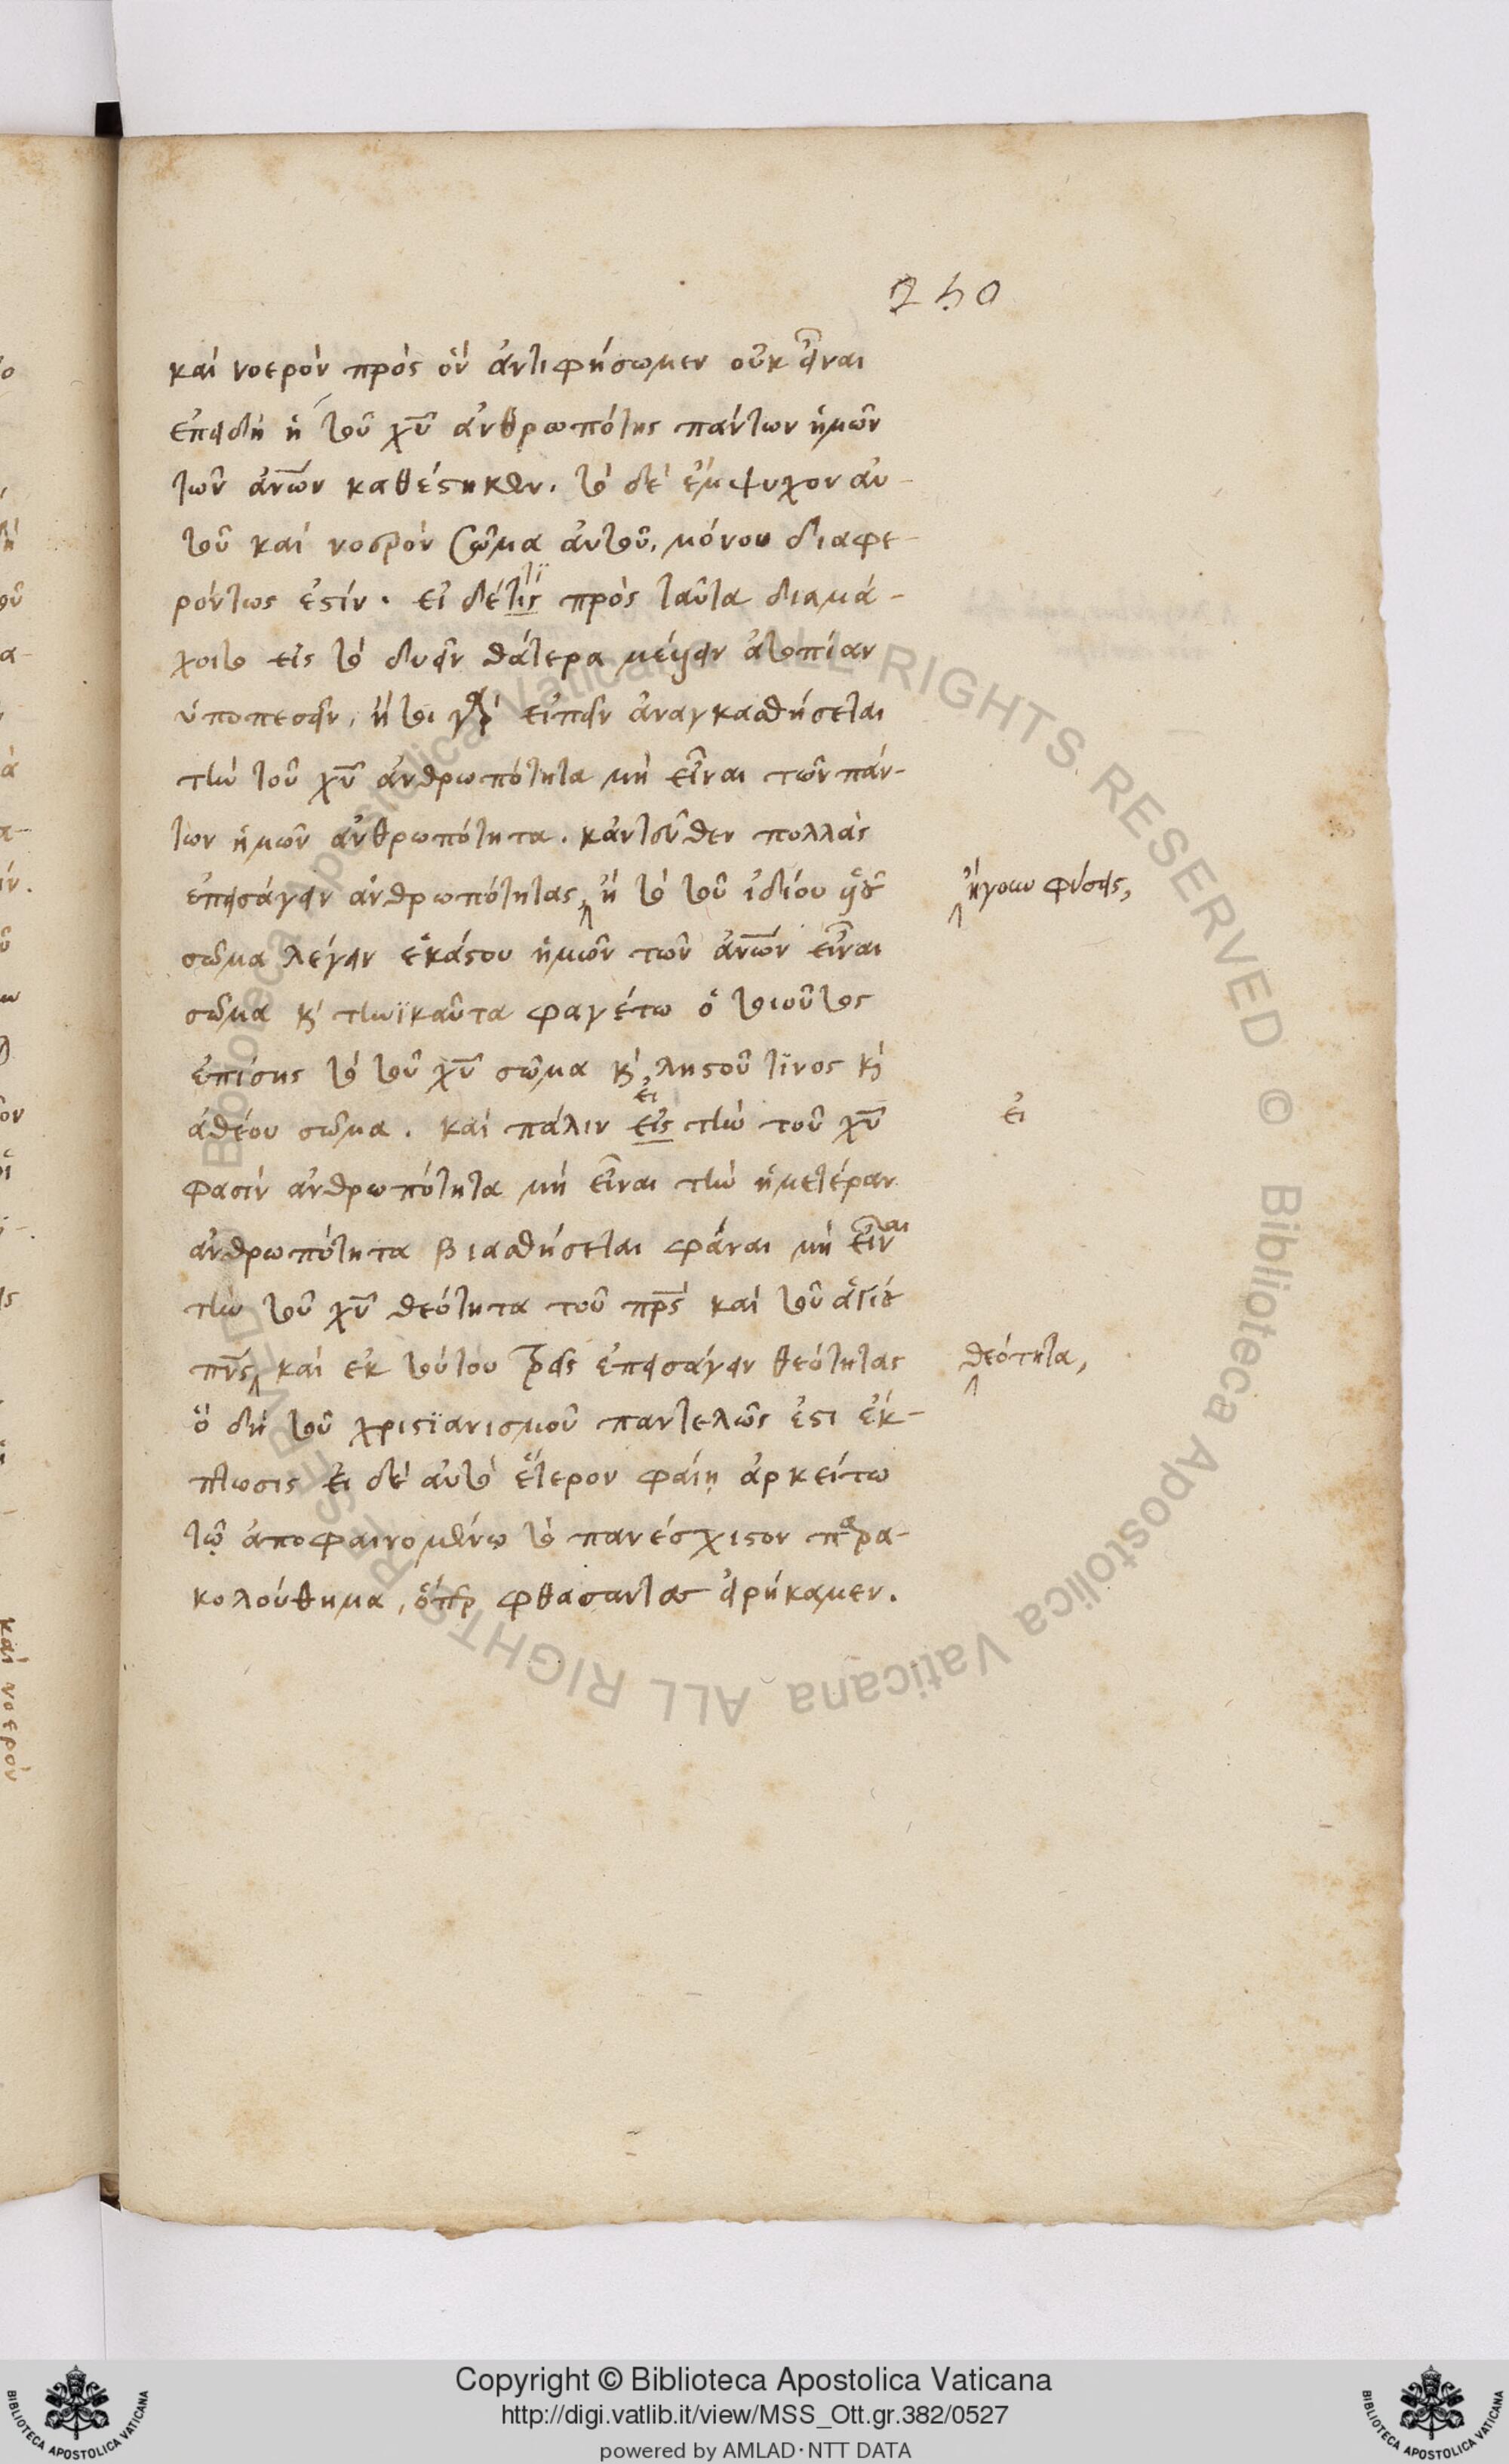 240
καὶ νοερὸν πρὸς ὃν ἀντιφήσωμεν οὐκ εἶναι
ἐπειδὴ ἡ τοῦ χῦ ἀνθρωπότης πάντων ἡμῶν
τῶν ἀνῶν καθέστηκεν. τὸ δὲ ἔμψυχον αυ-
τοῦ καὶ νοερὸν σῶμα αὐτοῦ, μόνου διαφε-
ρόντως ἐστίν. εἰ δέ τις πρὸς ταῦτα διαμά-
χοιτο εἰς τὸ δυεῖν θάτερα μέγαν ἀτοπίαν
ὑποπεσεῖν, ἤτοι γὰρ εἰπεῖν ἀναγκασθήσεται
τὴν τοῦ χῦ ἀνθρωπότητα μὴ εἶναι τῶν πάν-
των ἡμῶν ἀνθρωπότητα. κἀντεῦθεν πολλὰς
ἐπεισάγειν ἀνθρωπότητας, ἢ τὸ τοῦ ἰδίου
ἤγουν φύσεις,
σῶμα λέγειν ἑκάστου ἡμῶν τῶν ἀνῶν εἶναι
σῶμα κὶ τηνϊκαῦτα φαγέτω ὁ τοιοῦτος
ἐπίσης τὸ τοῦ χῦ σῶμα κὶ ληστοῦ τινος κὶ
ἀθέου σῶμα. καὶ πάλιν εἰς τὴν τοῦ χῦ
εἰ
εἰ
φασὶν ἀνθρωπότητα μὴ εἶναι τὴν ἡμετέραν
ἀνθρωπότητα βιασθήσεται φάναι μὴ εἶναι
τὴν τοῦ χῦ θεότητα τοῦ πρς καὶ τοῦ ἁγίου
πνς καὶ ἐκ τούτου τρεῖς ἐπεισάγειν θεότητας
θεότητα,
ὃ δὴ τοῦ χριστϊανισμοῦ παντελῶς ἐστι ἔκ-
πτωσις εἰ δὲ αὐτὸ ἕτερον φαίη ἀρκείτω
τῷ ἀποφαινομένῳ τὸ πανέσχιστον παρα-
κολούθημα, ὅπερ φθάσαντες εἰρήκαμεν.
καὶ νοερὸν
Copyright © Biblioteca Apostolica Vaticana
http://digi.vatlib.it/view/MSS_Ott.gr.382/0527
powered by AMLAD·NTT DATA
BIBLIOTECA APOSTOLICA VATICANA
BIBLIOTECA APOSTOLICA VATICANA
Biblioteca Apostolica Vaticana ALL RIGHTS RESERVED © Biblioteca Apostolica Vaticana ALL RIGHTS RESERVED